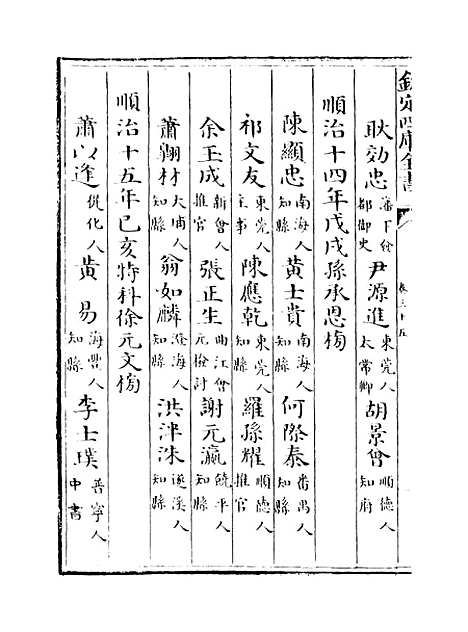 欽定四庫全書
卷三十五
耿効忠 藩下人 都御史 尹源進 東莞人 太常卿 胡景曾 順德人 知府
順治十四年戊戌孫承恩榜
陳顯忠 南海人 知縣 黃士貴 南海人 知縣 何際泰 番禺人 知縣
祁文友 東莞人 主事 陳應乾 東莞人 知縣 羅孫耀 順德人 推官
余玉成 新會人 推官 張正生 曲江會元 檢討 謝元瀛 饒平人 知縣
蕭翱材 大埔人 知縣 翁如麟 澄海人 知縣 洪泮洙 遂溪人 知縣
順治十五年己亥特科徐元文榜
蕭以逢 從化人 黃易 海豐人 知縣 李士璞 普寧人 中書